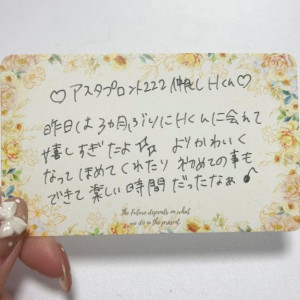 ♡アスタプロント222 推しHくん♡
昨日は3か月ぶりにHくんに会えて
嬉しすぎたよ よりかわいく
なってほめてくれたり 初めての事も
できて楽しい時間だったなぁ
The Future depends on what
we do in the present